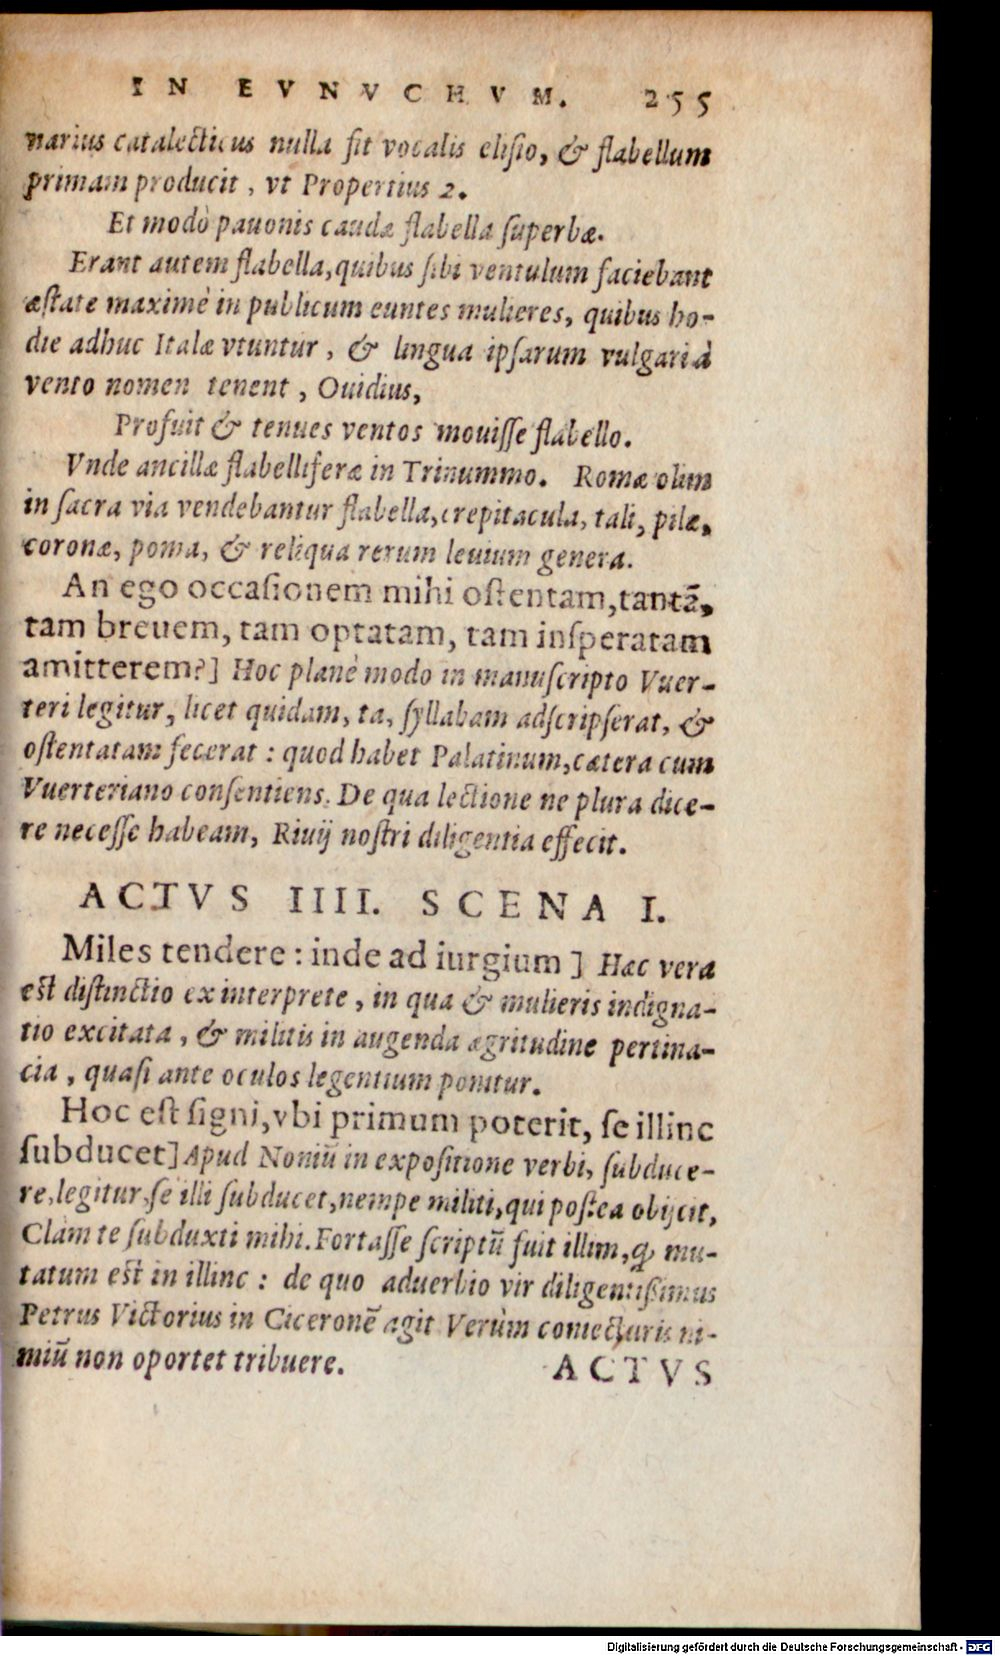 IN EVNVCHVM. 255
narius catalecticus nulla fit vocalis elisio, & flabellum
primam producit, vt Propertius 2.
Et modò pauonis caudæ flabella superbæ.
Erant autem flabella, quibus sibi ventulum faciebant
æstate maximè in publicum euntes mulieres, quibus ho-
die adhuc Italæ vtuntur, & lingua ipsarum vulgari à
vento nomen tenent, Ouidius,
Profuit & tenues ventos mouisse flabello.
Vnde ancillæ flabelliferæ in Trinummo. Romæ olim
in sacra via vendebantur flabella, crepitacula, tali, pilæ,
coronæ, poma, & reliqua rerum leuium genera.
An ego occasionem mihi ostentam, tantã,
tam breuem, tam optatam, tam insperatam
amitterem?] Hoc planè modo in manuscripto Vuer-
teri legitur, licet quidam, ta, syllabam adscripserat, &
ostentatam fecerat: quod habet Palatinum, cætera cum
Vuerteriano consentiens. De qua lectione ne plura dice-
re necesse habeam, Riuij nostri diligentia effecit.
ACTVS IIII. SCENA I.
Miles tendere: inde ad iurgium] Hæc vera
est distinctio ex interprete, in qua & mulieris indigna-
tio excitata, & militis in augenda ægritudine pertina-
cia, quasi ante oculos legentium ponitur.
Hoc est signi, vbi primum poterit, se illinc
subducet] Apud Noniũ in expositione verbi, subduce-
re, legitur, se illi subducet, nempe militi, qui postea obijcit,
Clam te subduxti mihi. Fortasse scriptũ fuit illim, ꝙ mu-
tatum est in illinc: de quo aduerbio vir diligentißimus
Petrus Victorius in Ciceronẽ agit Verùm coniecturis ni-
miũ non oportet tribuere.
ACTVS
Digitalisierung gefördert durch die Deutsche Forschungsgemeinschaft - DFG